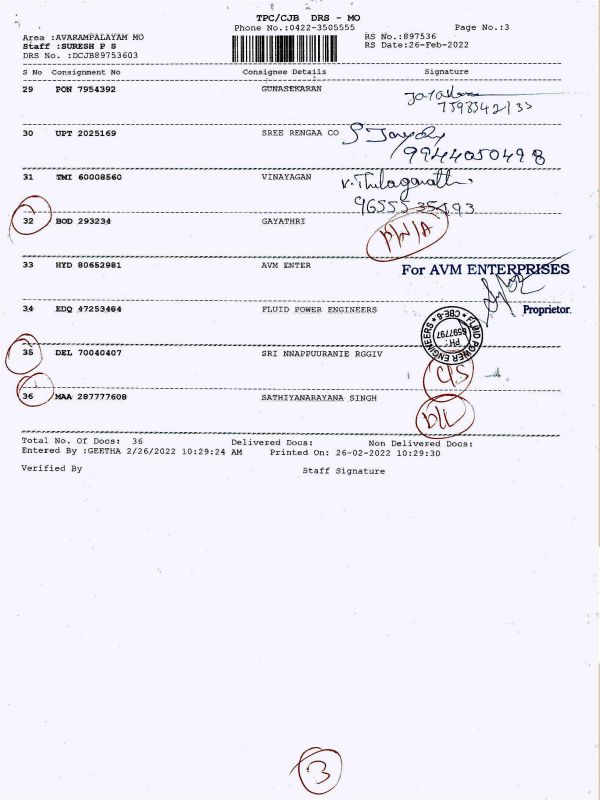 TPC/CJB DRS - MO
Phone No.:0422-3505555 Page No.:3
Area :AVARAMPALAYAM MO RS No.:897536
Staff :SURESH P S RS Date:26-Feb-2022
DRS No. :DCJB89753603
S No Consignment No Consignee Details Signature
29 PON 7954392 GUNASEKARAN
30 UPT 2025169 SREE RENGAA CO
9944050498
31 TMI 60008560 VINAYAGAN
32 BOD 293234 GAYATHRI
P/N/A
33 HYD 80652981 AVM ENTER For AVM ENTERPRISES
34 EDQ 47253484 FLUID POWER ENGINEERS Proprietor.
FLUID POWER ENGINEERS * CBE-6 *
PH: 6597797
35 DEL 70040407 SRI NNAPPUURANIE RGGIV
C/S
36 MAA 287777608 SATHIYANARAYANA SINGH
D/L
Total No. Of Docs: 36 Delivered Docs: Non Delivered Docs:
Entered By :GEETHA 2/26/2022 10:29:24 AM Printed On: 26-02-2022 10:29:30
Verified By Staff Signature
3